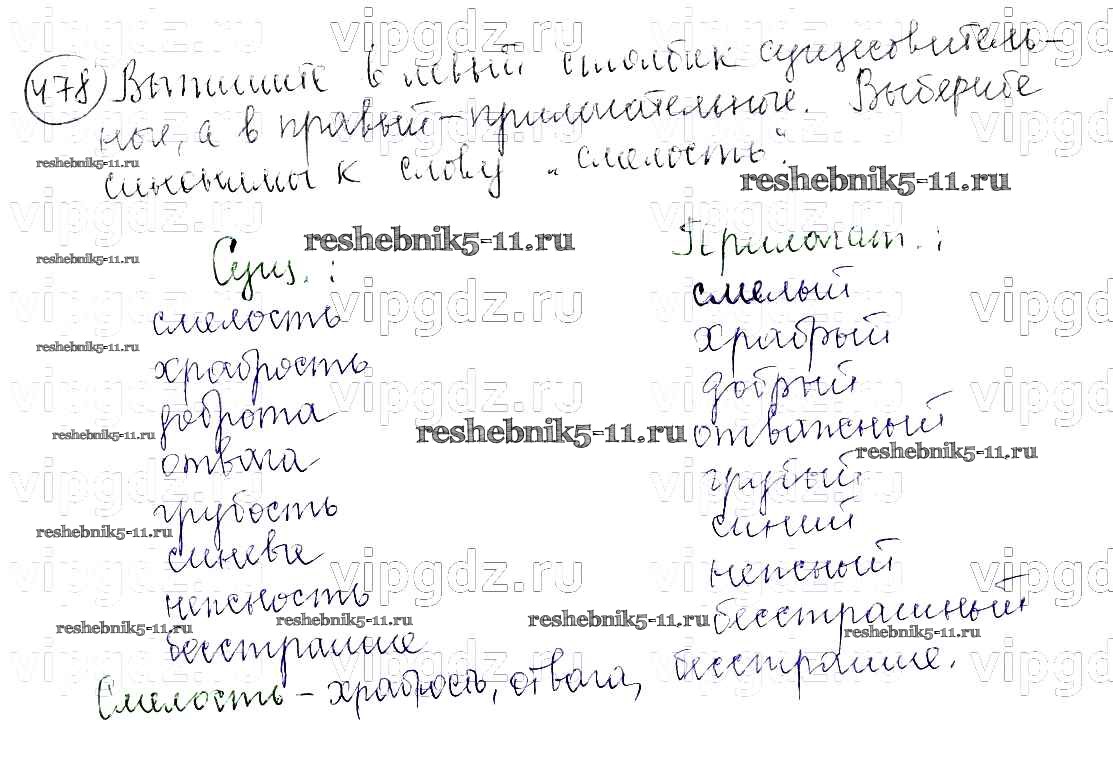 478 Выпишите в левый столбик существитель-
ные, а в правый - прилагательные. Выберите
синонимы к слову „смелость".
Сущ. :
Прилагат. :
смелость
смелый
храбрость
храбрый
доброта
добрый
отвага
отважный
грубость
грубый
синева
синий
нежность
нежный
бесстрашие
бесстрашный
Смелость - храбрость, отвага, бесстрашие.
vipgdz.ru
reshebnik5-11.ru